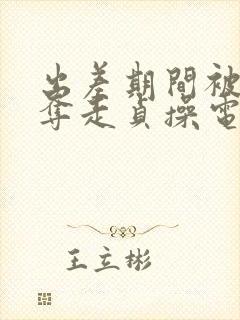 出差期間被
奪走貞操電
王立彬